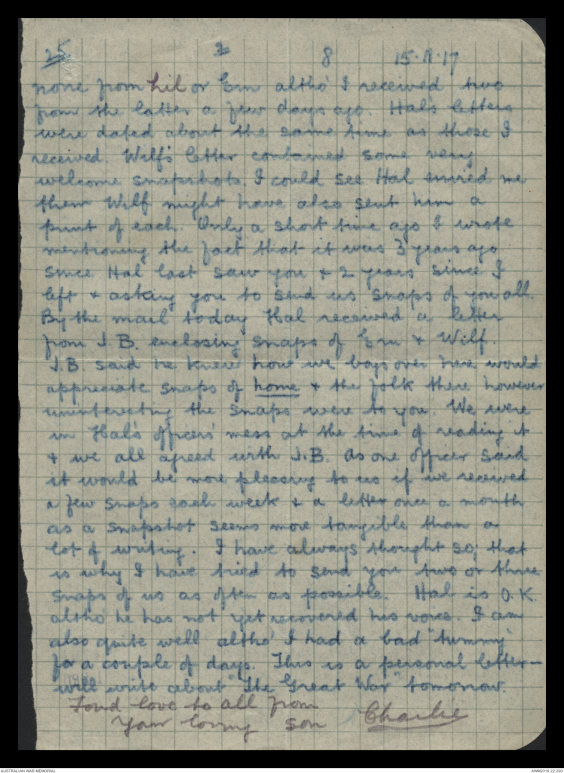 25 2 8 15.11.17
none from Lil or Ern altho' I received two
from the latter a few days ago. Hal's letters
were dated about the same time as those I
received. Wilf's letter contained some very
welcome snapshots. I could see Hal envied me
them Wilf might have also sent him a
print of each. Only a short time ago I wrote
mentioning the fact that it was 3 years ago
since Hal last saw you & 2 years since I
left & asking you to send us snaps of you all.
By the mail today Hal received a letter
from J.B. enclosing snaps of Ern & Wilf.
J.B. said he knew how we boys over here would
appreciate snaps of home & the folk there however
uninteresting the snaps were to you. We were
in Hal's officers' mess at the time of reading it
& we all agreed with J.B. as one officer said
it would be more pleasing to us if we received
a few snaps each week & a letter once a month
as a snapshot seems more tangible than a
lot of writing. I have always thought so, that
is why I have tried to send you two or three
snaps of us as often as possible. Hal is O.K.
altho' he has not yet recovered his voice. I am
also quite well altho' I had a bad "tummy"
for a couple of days. This is a personal letter—
will write about "The Great War" tomorrow.
Fond love to all from
Your loving son Charlie
AUSTRALIAN WAR MEMORIAL